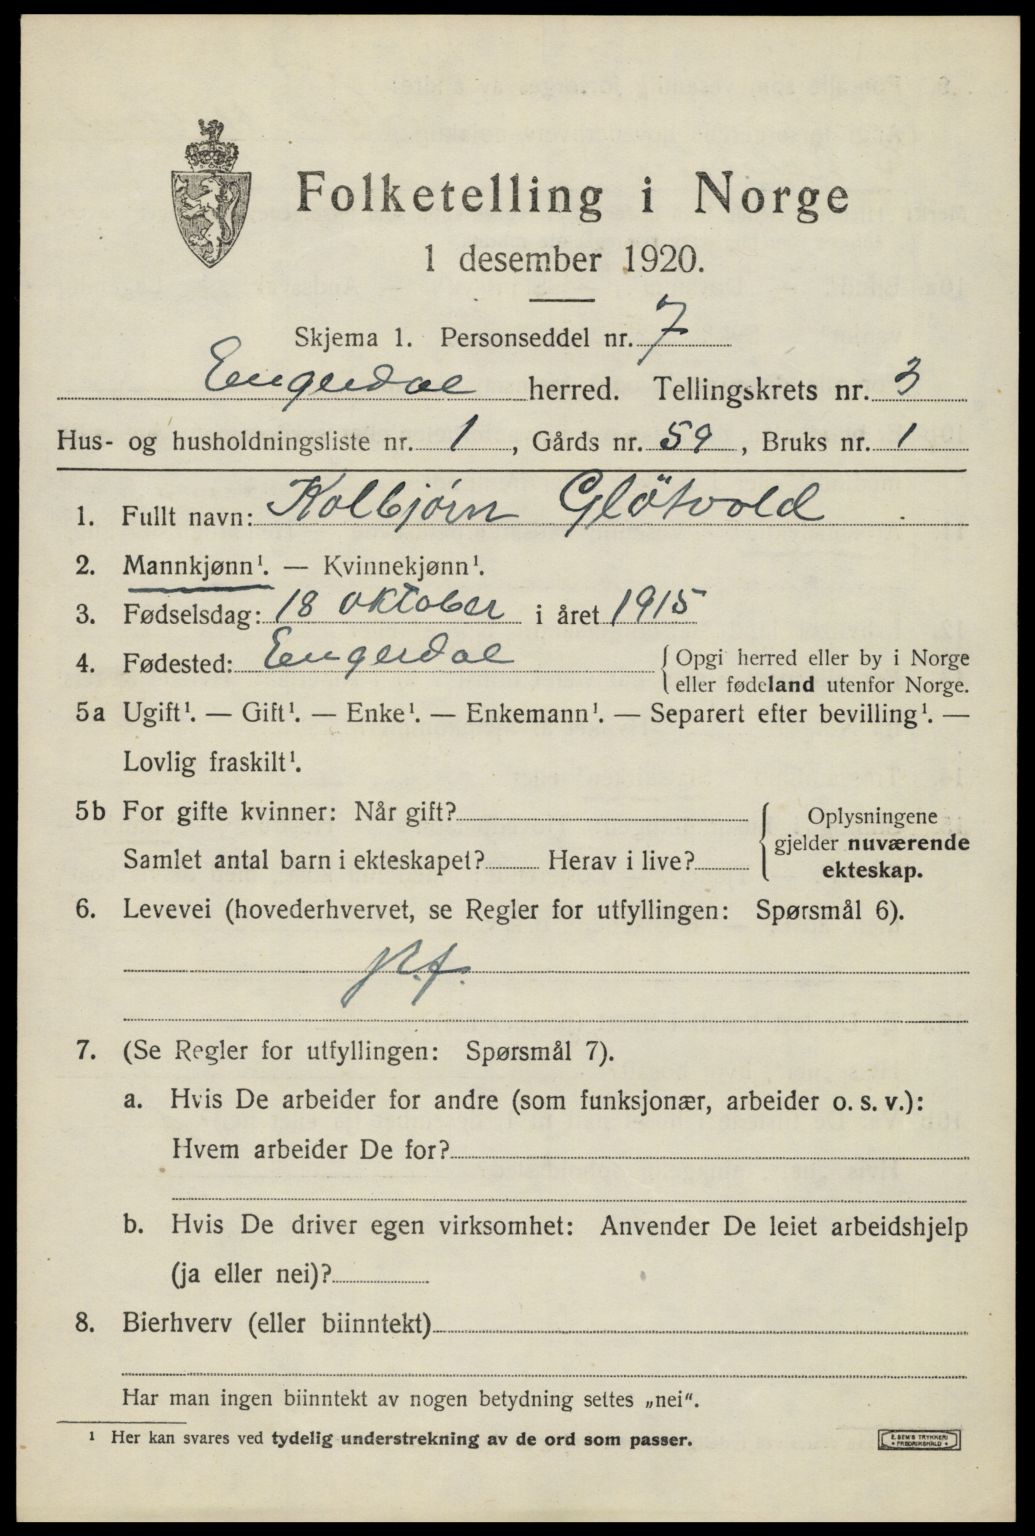 Folketelling i Norge
1 desember 1920.
Skjema 1. Personseddel nr. 7
Engerdal herred. Tellingskrets nr. 3
Hus- og husholdningsliste nr. 1, Gårds nr. 59, Bruks nr. 1
1. Fullt navn: Kolbjörn Glötvold
2. Mannkjønn¹. — Kvinnekjønn¹.
3. Fødselsdag: 18 oktober i året 1915
4. Fødested: Engerdal { Opgi herred eller by i Norge
eller fødeland utenfor Norge.
5a Ugift¹. — Gift¹. — Enke¹. — Enkemann¹. — Separert efter bevilling¹. —
Lovlig fraskilt¹.
5b For gifte kvinner: Når gift?
Samlet antal barn i ekteskapet? Herav i live?
{ Oplysningene
gjelder nuværende
ekteskap.
6. Levevei (hovederhvervet, se Regler for utfyllingen: Spørsmål 6).
7. (Se Regler for utfyllingen: Spørsmål 7).
a. Hvis De arbeider for andre (som funksjonær, arbeider o. s. v.):
Hvem arbeider De for?
b. Hvis De driver egen virksomhet: Anvender De leiet arbeidshjelp
(ja eller nei)?
8. Bierhverv (eller biinntekt)
Har man ingen biinntekt av nogen betydning settes „nei“.
¹ Her kan svares ved tydelig understrekning av de ord som passer.
E. SEM'S TRYKKERI
* FREDRIKSHALD *